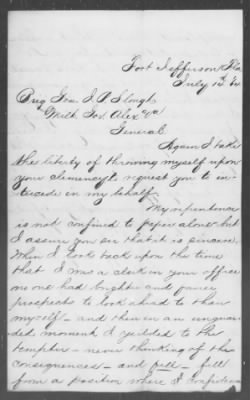 Fort Jefferson Fla
July 14th /64
Brig Gen. J. P. Slough
Milt. Gov. Alex Va
General.
Again I take
the liberty of throwing myself upon
your clemency & request you to in-
tercede in my behalf.
My repentance
is not confined to paper alone but
I assure you sir that it is sincere.
When I look back upon the time
that I was a clerk in your office
no one had brighter and fairer
prospects to look ahead to than
myself - and then in an unguar-
ded moment I yielded to the
tempter - never thinking of the
consequences - and fell - fell
from a position where I